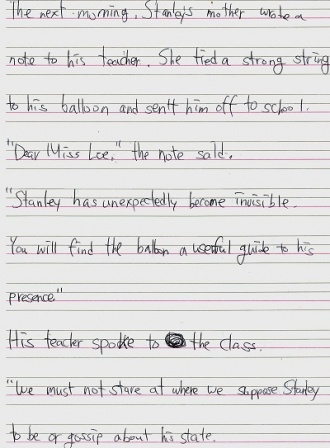 The next morning, Stanley's mother wrote a
note to his teacher. She tied a strong string
to his balloon and sentt him off to school.
"Dear Miss Loe," the note said.
"Stanley has unexpectedly become invisible.
You will find the balloon a useful guide to his
presence"
His teacher spoke to the class.
"We must not stare at where we suppose Stanley
to be or gossip about his state.